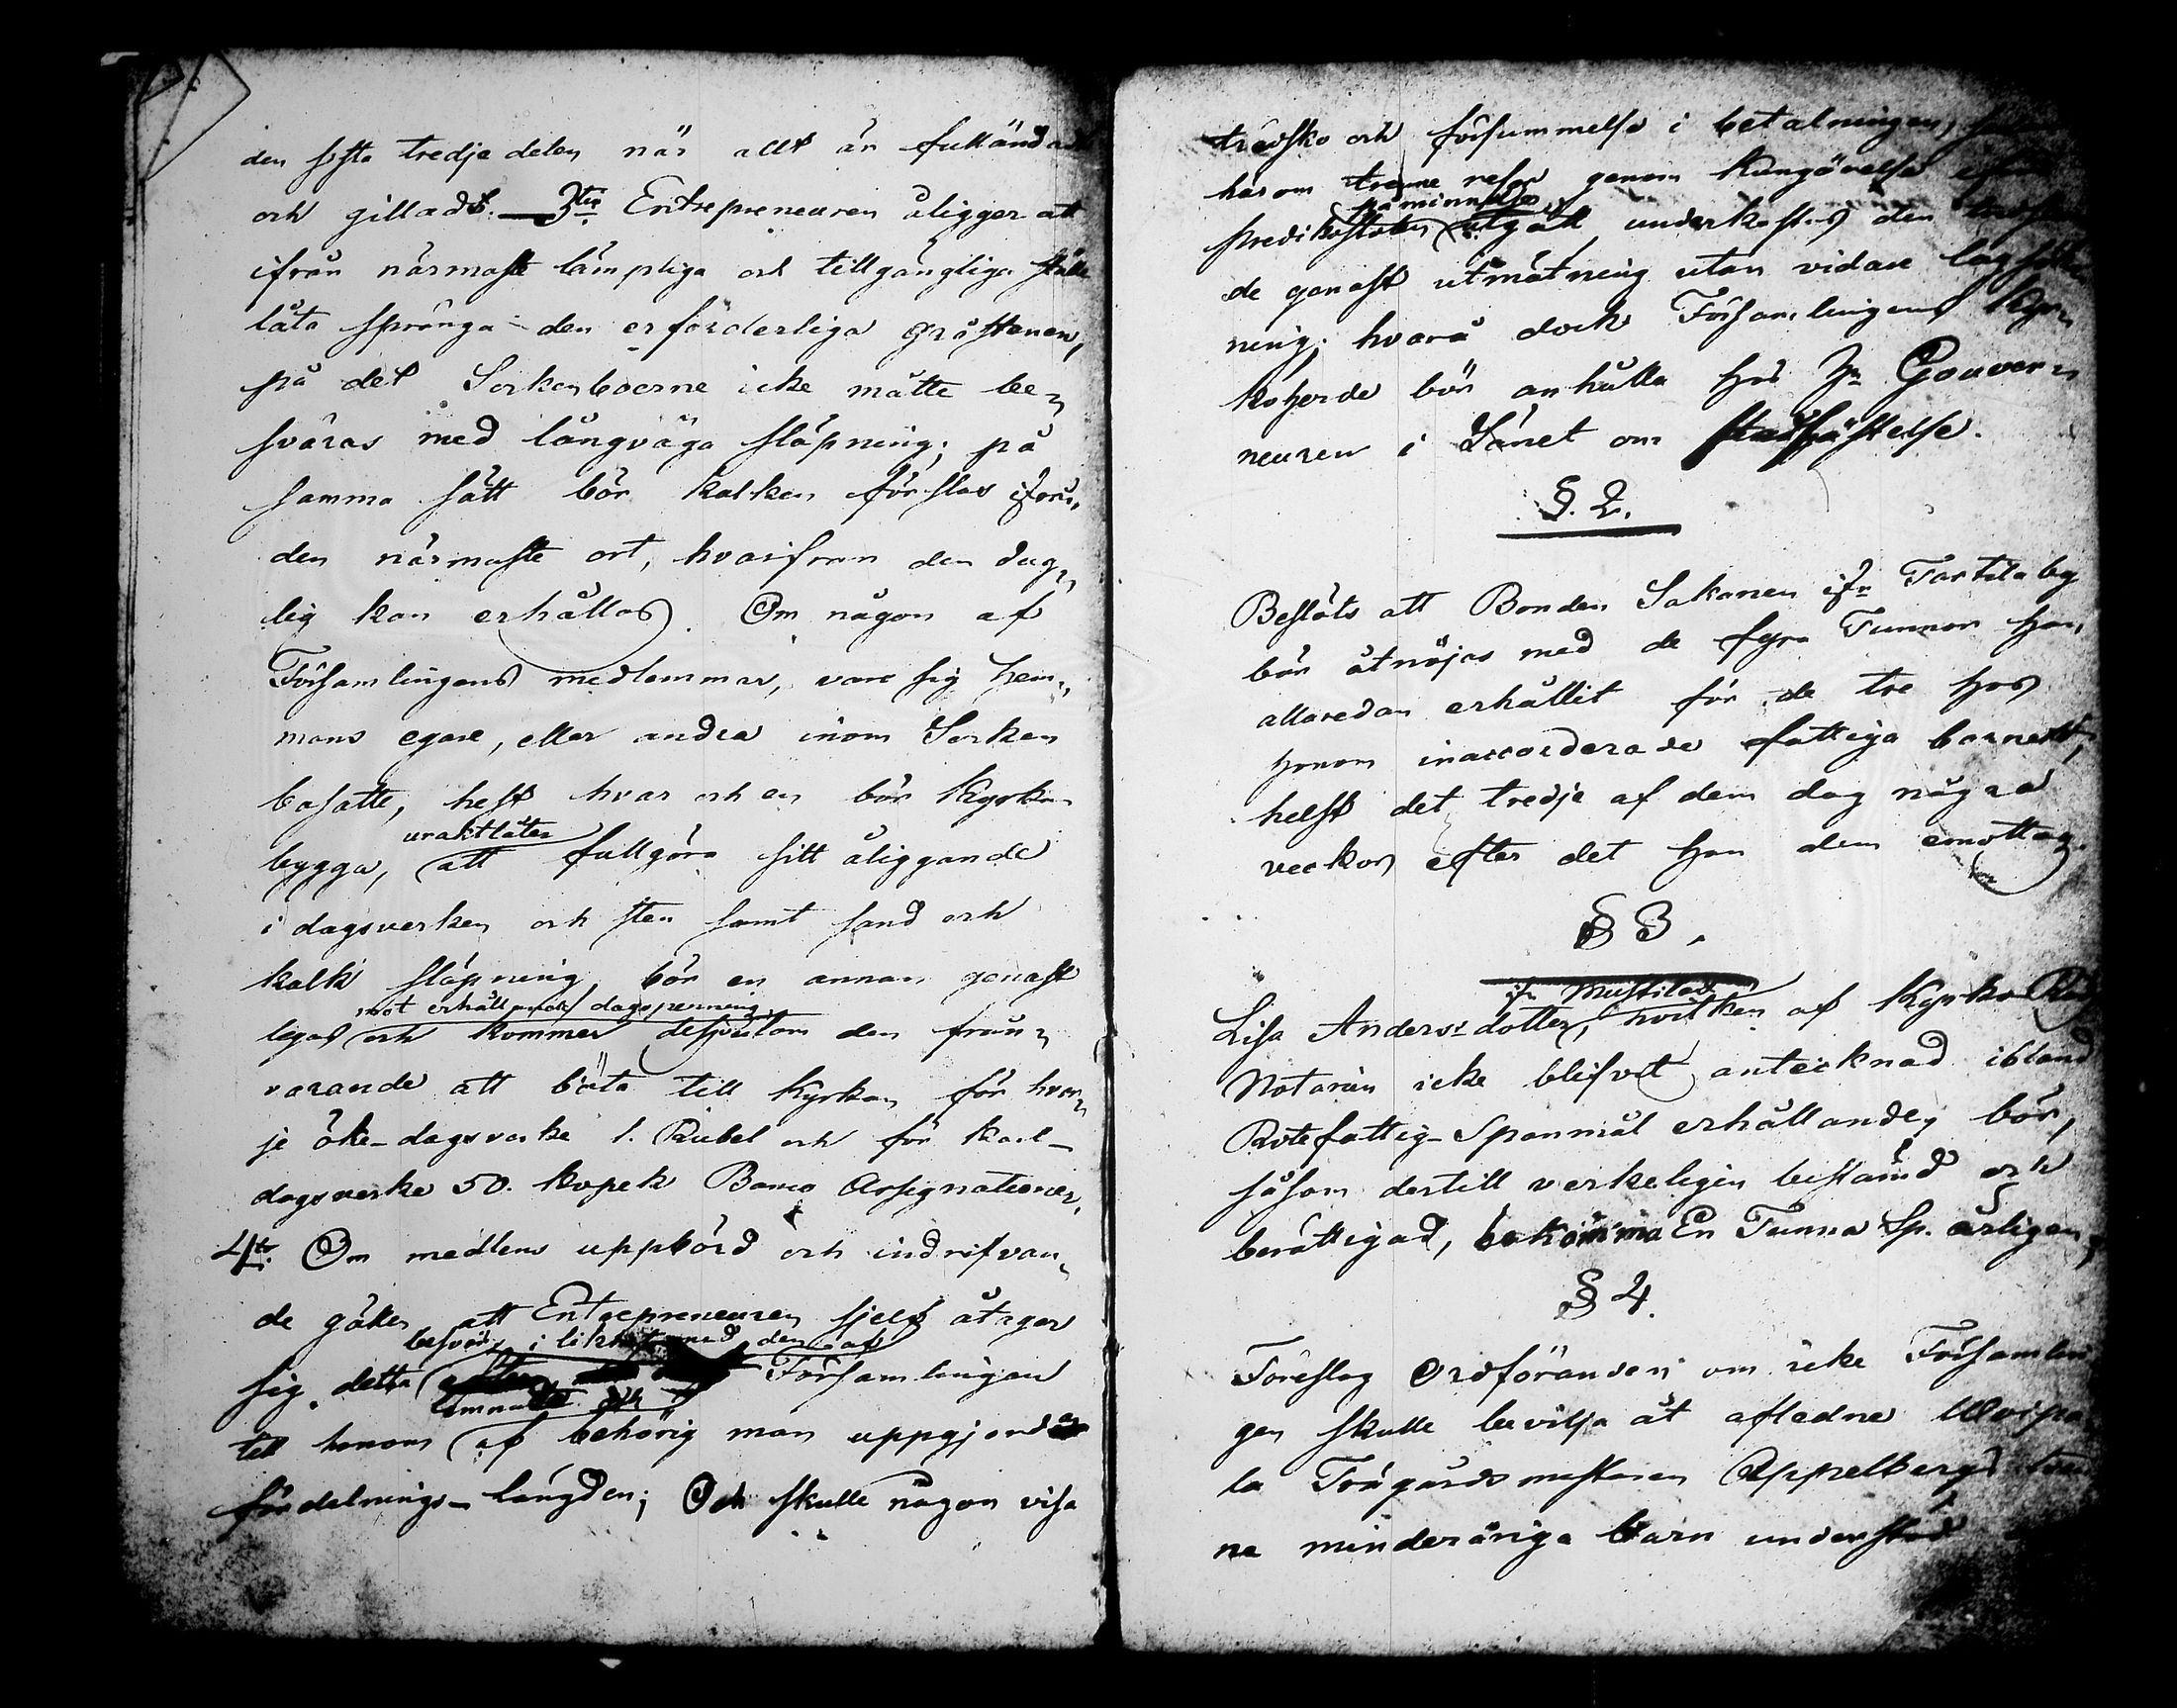 den sista tredjedelen när allt är fulländadt
och gilladt. — 3tio Entrepreneuren åligger att
ifrån närmaste lämpliga och tillgängliga ställe
låta spränga den erforderliga gråstenen,
på det Sockenboerne icke måtte be-
sväras med långväga släpning; på
samma sätt bör kalken förslas ifrån
den närmaste ort, hvarifrån den dug-
lig kan erhållas. Om någon af
Församlingens medlemmar, vare sig hem-
mans egare, eller andra inom Socken
bosatte, helst hvar och en bör Kyrkan
uraktlåter
bygga, att fullgöra sitt åliggande
i dagsverken och sten samt sand och
kalk släpning bör en annan genast
mot erhållande dagspenning
legas och kommer dessutom den från-
varande att böta till Kyrkan för hvar-
je öke-dagsverke 1. Rubel och för karl-
dagsverke 50. kopek Banco Assignationer.
4to Om medlens uppbörd och indrifvan-
de gäller att Entrepreneuren sjelf åtager
besvär, i likhet med den af
sig detta Församlingen
lemnade och
till honom af behörig man uppgjorda
fördelnings-längden; Och skulle någon visa
tredsko och försummelse i betalningen,
härom trenne resor genom kungörelse ifrån
påminnelse
predikostolen utgått, underkastas den
de genast utmätning utan vidare lagsök-
ning; hvarå dock Församlingens Kyr-
koherde bör anhålla hos Hr Gouver-
neuren i Länet om stadfästelse.
§. 2.
Beslöts att Bonden Sakonen ifn Tarttila by
bör åtnöjas med de fyra Tunnor han,
allaredan erhållit för de tre hos
honom inaccorderade fattiga barnen,
helst det tredje af dem dog några
veckor efter det han dem emottog.
§ 3.
ifn Mustila
Lisa Andersdotter, hvilken af Kyrko Råds
Notarien icke blifvit antecknad ibland
Rotefattig-Spanmål erhållande, bör,
såsom dertill verkeligen bestämd och
berättigad, bekomma En Tunna Sp. årligen,
§ 4.
Föreslog Ordföranden; om icke Församlin
gen skulle bevilja åt afledne
la Trägårdsmästaren Appelbergs
ne minderåriga barn understöd